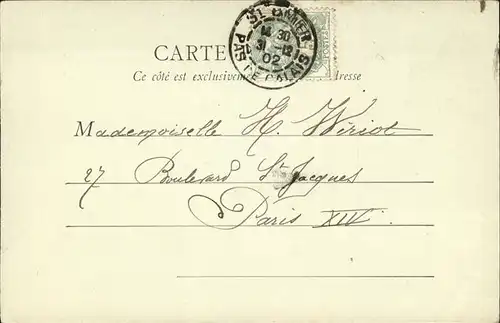 ST OMER
14 30
31 -12
02
PAS DE CALAIS
POSTES
CARTE
Ce côté est exclusivement
resse
Mademoiselle H. Wiriot
27 Boulevard St Jacques
Paris XIV.